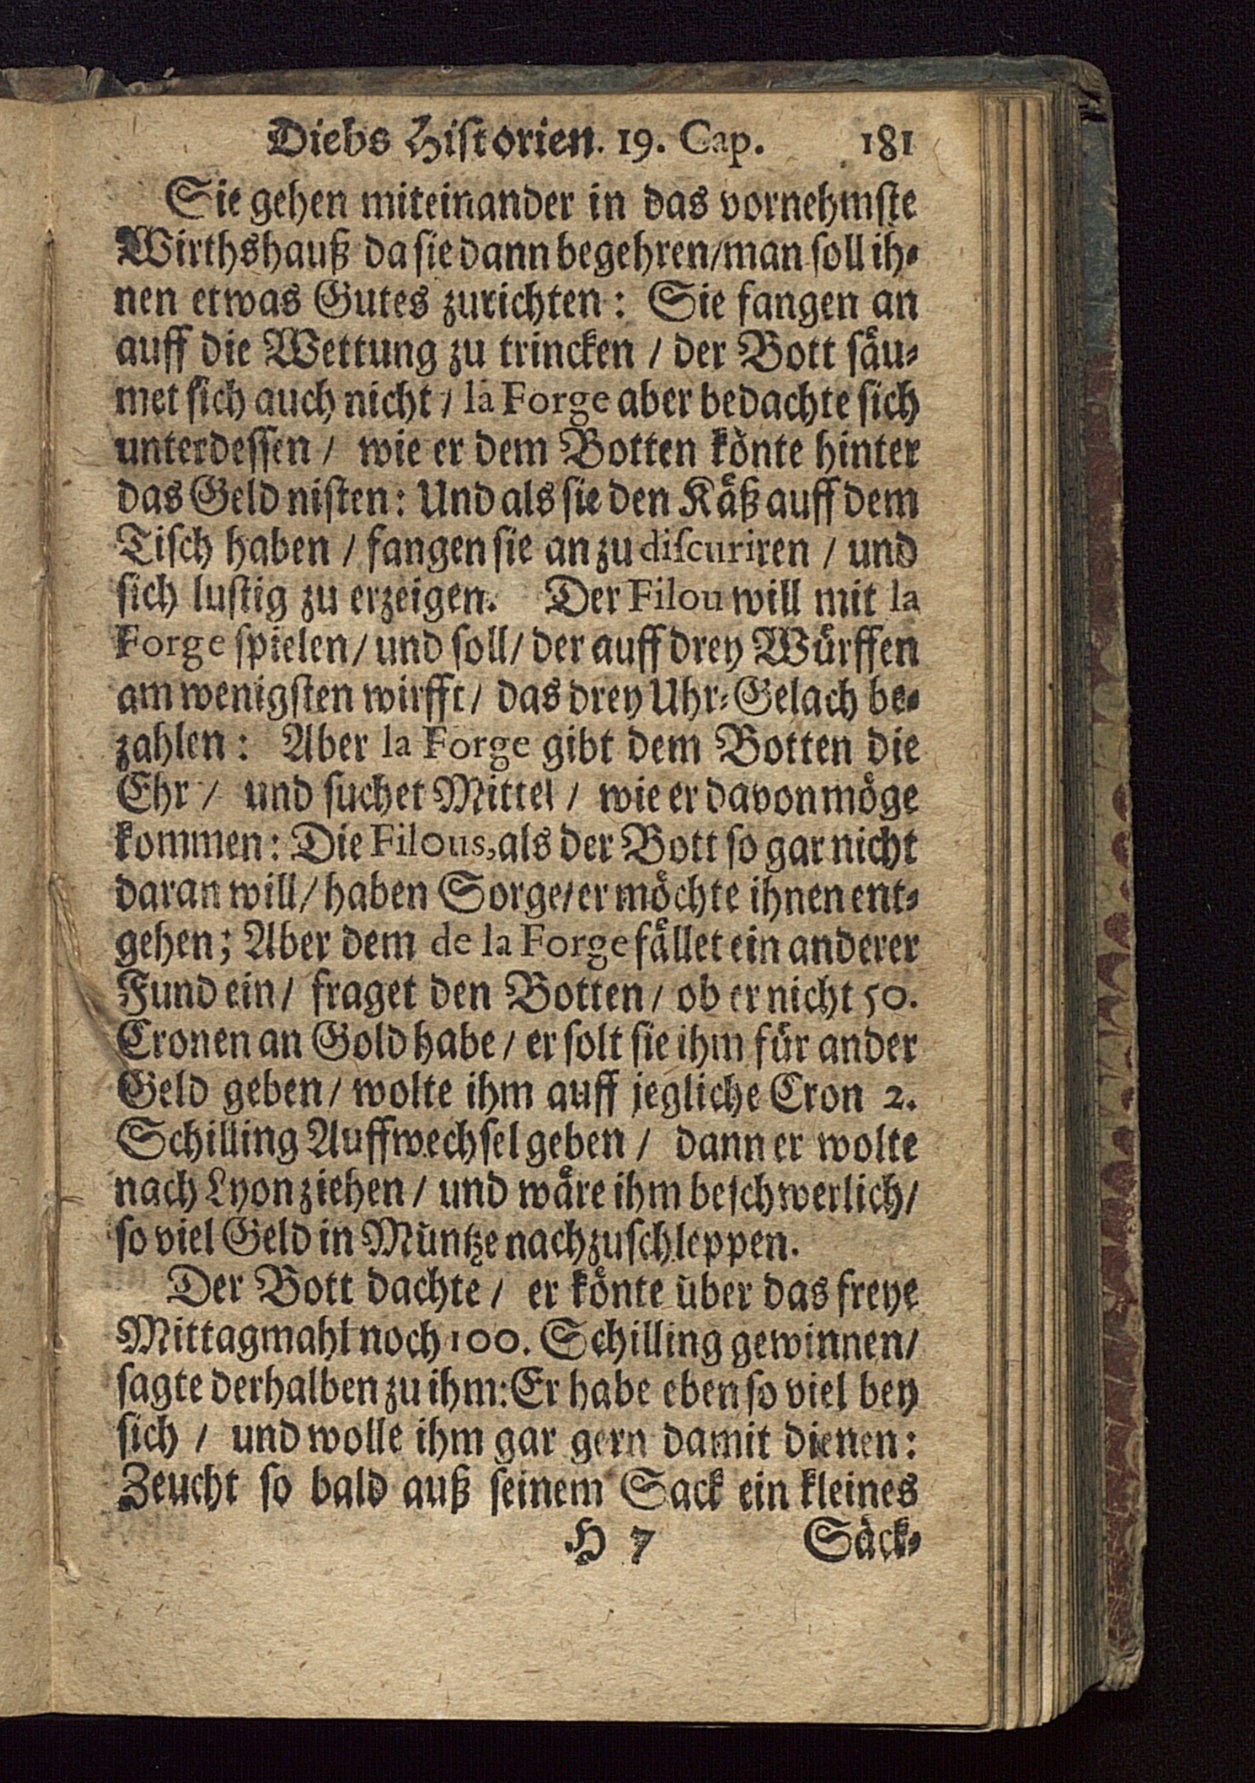 Diebs Historien. 19. Cap. 181
Sie gehen miteinander in das vornehmste
Wirthshauß da sie dann begehren/man soll ih-
nen etwas Gutes zurichten: Sie fangen an
auff die Wettung zu trincken / der Bott säu-
met sich auch nicht / la Forge aber bedachte sich
unterdessen / wie er dem Botten könte hinter
das Geld nisten: Und als sie den Käß auff dem
Tisch haben / fangen sie an zu discuriren / und
sich lustig zu erzeigen. Der Filou will mit la
Forge spielen/ und soll/ der auff drey Würffen
am wenigsten wirfft/ das drey Uhr-Gelach be-
zahlen: Aber la Forge gibt dem Botten die
Ehr / und suchet Mittel / wie er davon möge
kommen: Die Filous, als der Bott so gar nicht
daran will/ haben Sorge/er möchte ihnen ent-
gehen; Aber dem de la Forge fället ein anderer
Fund ein/ fraget den Botten/ ob er nicht 50.
Cronen an Gold habe/ er solt sie ihm für ander
Geld geben/ wolte ihm auff jegliche Cron 2.
Schilling Auffwechsel geben / dann er wolte
nach Lyon ziehen/ und wäre ihm beschwerlich/
so viel Geld in Müntze nachzuschleppen.
Der Bott dachte / er könte über das freye
Mittagmahl noch 100. Schilling gewinnen/
sagte derhalben zu ihm: Er habe eben so viel bey
sich / und wolle ihm gar gern damit dienen:
Zeucht so bald auß seinem Sack ein kleines
H 7 Säck-